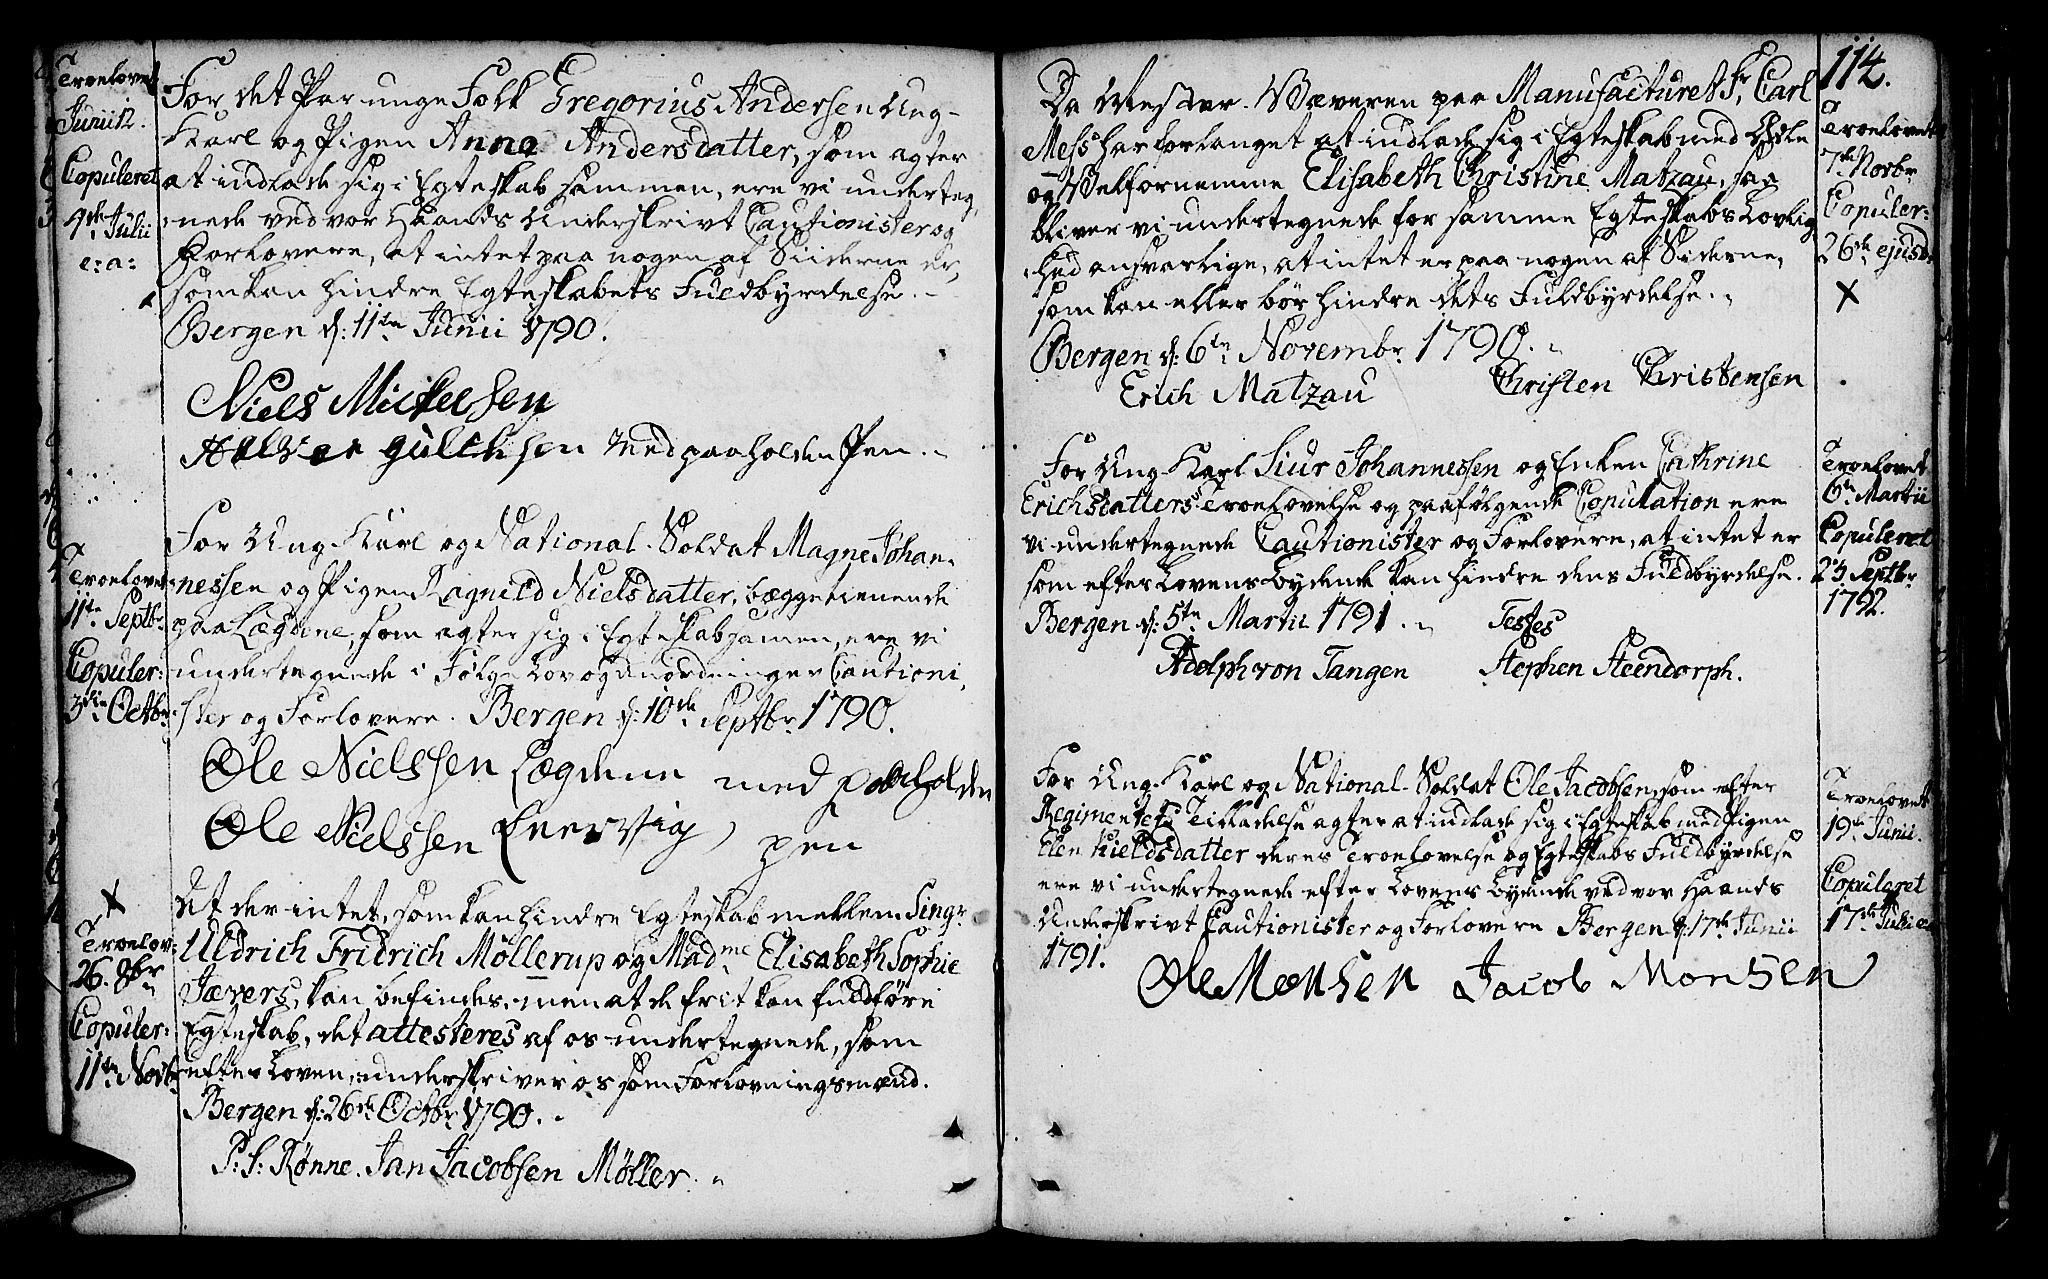 Troelovet
Junii 12.
Copuleret
4de Julii
e: a:
For det Par unge Folk Gregorius Andersen Ung-
Karl og Pigen Anna Andersdatter, som agter
at indlade sig i Egteskab sammen, ere vi underteg,
nede ved vor Haands Underskrivt Cautionister og
Forlovere, at intet paa nogen af Siiderne er,
som kan hindre Egteskabets Fuldbyrdelse.
Bergen d: 11te Junii 1790.
Niels Mickelsen
Halver gulichsen med paaholden Pen.
Troelovet
11te Septbr.
Copuler:
3die Octbr.
For Ung-Karl og National-Soldat Magne Johan-
nessen og Pigen Ragnild Nielsdatter, begge tienende
paa Lægdene, som agter sig i Egteskab samen, ere vi
undertegnede i Følge Lov og Anordninger Cautioni,
ster og Forlovere. Bergen d: 10de Septbr 1790.
Ole Nielssen Lægdene med paaholden
Ole Nielssen Enervig pen
Troelov:
26. 8br
Copuler:
11te Novbr
At der intet, som kan hindre Egteskab mellem Singr
Uldrich Fridrich Møllerup og Madme Elisabeth Sophie
Jævers, kan befindes, men at de frit kan fuldføre
Egteskab, det attesteres af os undertegnede, som
efter Loven, underskriver os som Forlovningsmænd.
Bergen d: 26de Octbr 1790.
P: S: Rønne. Jan Jacobsen Møller.
114.
Da Mester-Væveren paa Manufacturet Sr. Carl
Mess har forlanget at indlade sig i Egteskab med Ædle
og Velfornemme Elisabeth Christine Matzau, saa
bliver vi undertegnede for samme Egteskabs Lovlig-
hed ansvarlige, at intet er paa nogen af Siderne,
som kan eller bør hindre dets Fuldbyrdelse.
Bergen d: 6te Novembr. 1790.
Erich Matzau Christen Christensen
Troelovet
7de Novbr
Copuler:
26de ejusd.
For Ung-Karl Siur Johannessen og Enken Cathrine
Erichsdatters Troelovelse og paafølgende Copulation ere
vi undertegnede Cautionister og Forlovere, at intet er
som efter Lovens Bydende kan hindre dens Fuldbyrdelse.
Bergen d: 5te Martii 1791. Testes
Adolph von Tangen Stephen Steendorph.
Troelovet
6te Martii
Copuleret
23 Septbr
1792.
For Ung-Karl og National-Soldat Ole Jacobsen, som efter
Regimentets Tilladelse agter at indlade sig i Egteskab med Pigen
Elen Kieldsdatter deres Troelovelse og Egteskabs Fuldbyrdelse
ere vi undertegnede efter Lovens Bydende ved vor Haands
Underskrivt Cautionister og Forlovere Bergen d: 17de Junii
1791.
Ole Monsen Jacob Monsen
Troelovet
19de Junii.
Copuleret
17de Julii